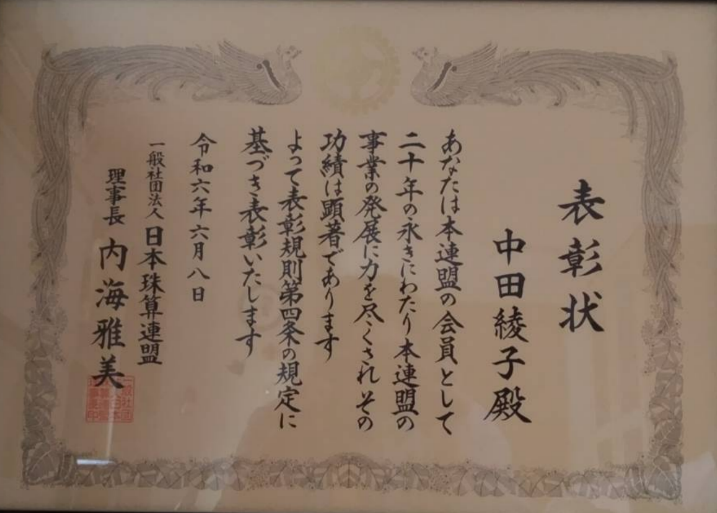 表彰状
中田綾子殿
あなたは本連盟の会員として
二十年の永きにわたり本連盟の
事業の発展に力を尽くされその
功績は顕著であります
よって表彰規則第四条の規定に
基づき表彰いたします
令和六年六月八日
一般社団法人日本珠算連盟
理事長 内海雅美